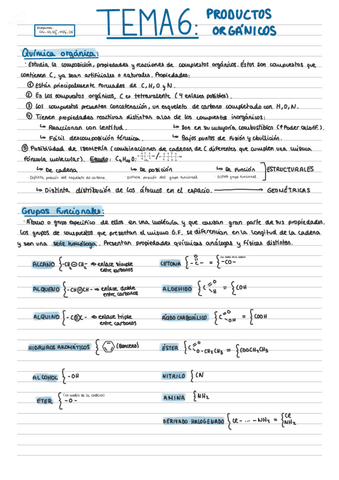 TEMA 6: PRODUCTOS ORGÁNICOS
Química orgánica:
· Estudia la composición, propiedades y reacciones de compuestos orgánicos. Estos son compuestos que
contienen C, ya sean artificiales o naturales. Propiedades:
① Están principalmente formados de C, H, O y N.
② En los compuestos orgánicos, C es tetravalente (4 enlaces posibles).
③ Los compuestos presentan concatenación, un esqueleto de carbono completado con H, O, N.
④ Tienen propiedades reactivas distintas a las de los compuestos inorgánicos:
↳ Reaccionan con lentitud. ↳ Son en su mayoría combustibles
↳ Fácil descomposición térmica. ↳ Bajos puntos de fusión y ebullición.
⑤ Posibilidad de isomería (combinaciones de cadenas de C diferentes que cumplen una misma
fórmula molecular).
↳ De cadena ↳ De posición ↳ De función ESTRUCTURALES
Distinta posición del esqueleto de carbono. Distinta posición del grupo funcional. Distinto grupo funcional.
↳ Distinta distribución de los átomos en el espacio. → GEOMÉTRICAS
Grupos Funcionales:
· Átomo o grupo específico de ellos en una molécula y que causan gran parte de sus propiedades.
Los grupos de compuestos que presentan el mismo G.F. se diferencian en la longitud de la cadena
y son una serie homóloga. Presentan propiedades químicas análogas y físicas distintas.
ALCANO { -CH-CH- → enlace simple entre carbonos
CETONA { -C- = { -CO-
ALQUENO { -CH=CH- → enlace doble entre carbonos
ALDEHIDO { C O H = { COH
ALQUINO { -C≡C- → enlace triple entre carbonos
ÁCIDO CARBOXÍLICO { C = { COOH
HIDRUROS AROMÁTICOS { (Benceno)
ÉSTER { C O O-CH₂CH₃ = { COOCH₂CH₃
ALCOHOL { -OH
NITRILO { CN
ETER { -O-
AMINA { NH₂
DERIVADO HALOGENADO { Cl- ... -NH₂ = { Cl NH₂